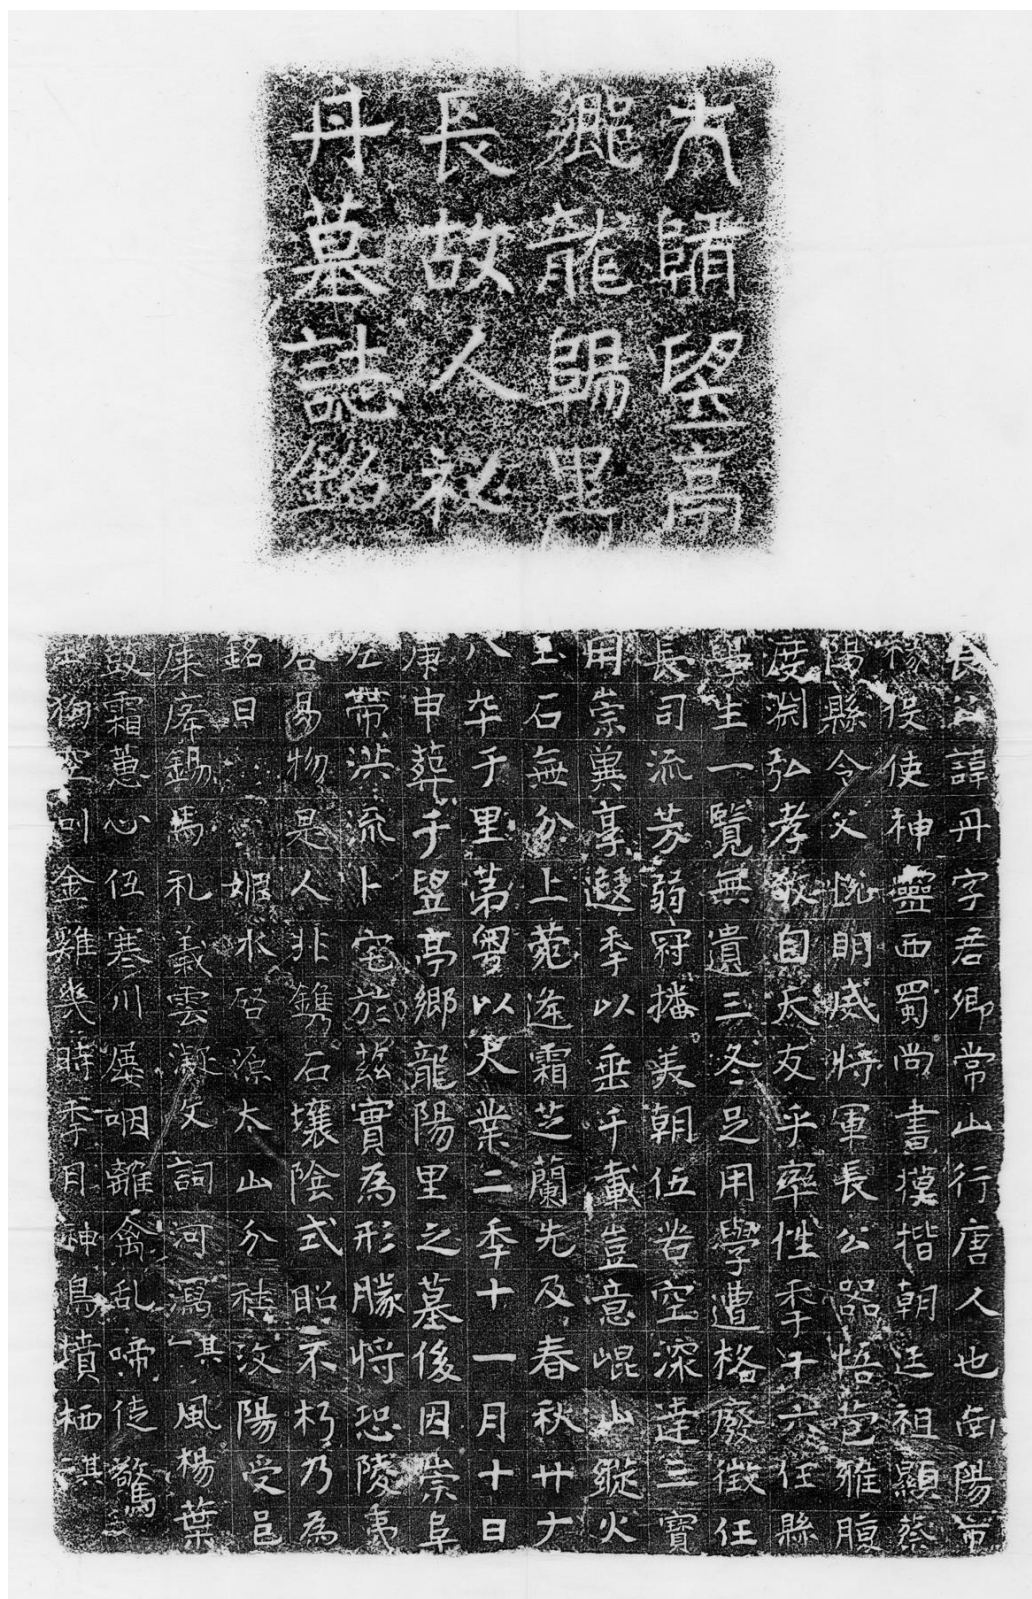 大隋望亭
鄉龍陽里
長故人秘
丹墓誌銘
長公諱丹字君卿常山行唐人也南陽市
椽役使神靈西蜀尚書摸揩朝廷祖顯蔡
陽縣令父悅明威將軍長公器悟苞雅腹
度淵弘孝敬自天友乎率性秊十六任縣
學生一覽無遺三冬足用學遭格廢徵任
長司流芳弱冠播美朝伍若空深達三寶
用崇冀享遐秊以垂千載豈意崐山縱火
玉石無分上菀逢霜芝蘭先及春秋廿有
八卒于里第粵以大業二秊十一月十日
庚申葬于望亭鄉龍陽里之墓後因崇阜
左帶洪流卜宅於茲實為形勝將恐陵夷
谷易物是人非鐫石壤陰式昭不朽乃為
銘曰 媯水啓源太山分秩汶陽受邑
康庠錫馬礼義雲凝文詞河瀉其一風楊葉
鼓霜蕙心伍寒川屡咽離禽乱啼徒驚其二
狗空叫金雞幾時秊月神鳥墳栖其